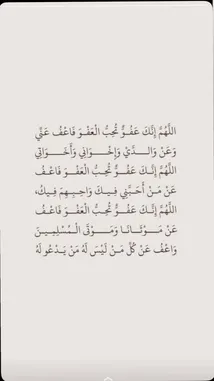 اللَّهُمَّ إِنَّكَ عَفُوٌّ تُحِبُّ الْعَفْوَ فَاعْفُ عَنِّي
وَعَنْ وَالِدَيَّ وَإِخْوَانِي وَأَخَوَاتِي
اللَّهُمَّ إِنَّكَ عَفُوٌّ تُحِبُّ الْعَفْوَ فَاعْفُ
عَنْ مَنْ أَحَبَّنِي فِيكَ وَاحِبِهِمْ فِيكَ،
اللَّهُمَّ إِنَّكَ عَفُوٌّ تُحِبُّ الْعَفْوَ فَاعْفُ
عَنْ مَوْتَانَا وَمَوْتَى الْمُسْلِمِينَ
وَاعْفُ عَنْ كُلِّ مَنْ لَيْسَ لَهُ مَنْ يَدْعُو لَهُ